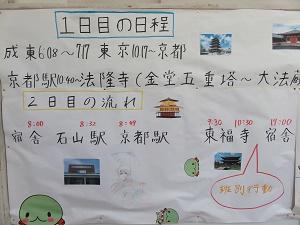 1日目の日程
成東6:08～7:17 東京10:17～京都
京都駅10:40～法隆寺(金堂五重塔～大法蔵
2日目の流れ
8:00 8:32 8:49 9:30 10:30 17:00
宿舎 石山駅 京都駅 東福寺 宿舎
班別行動